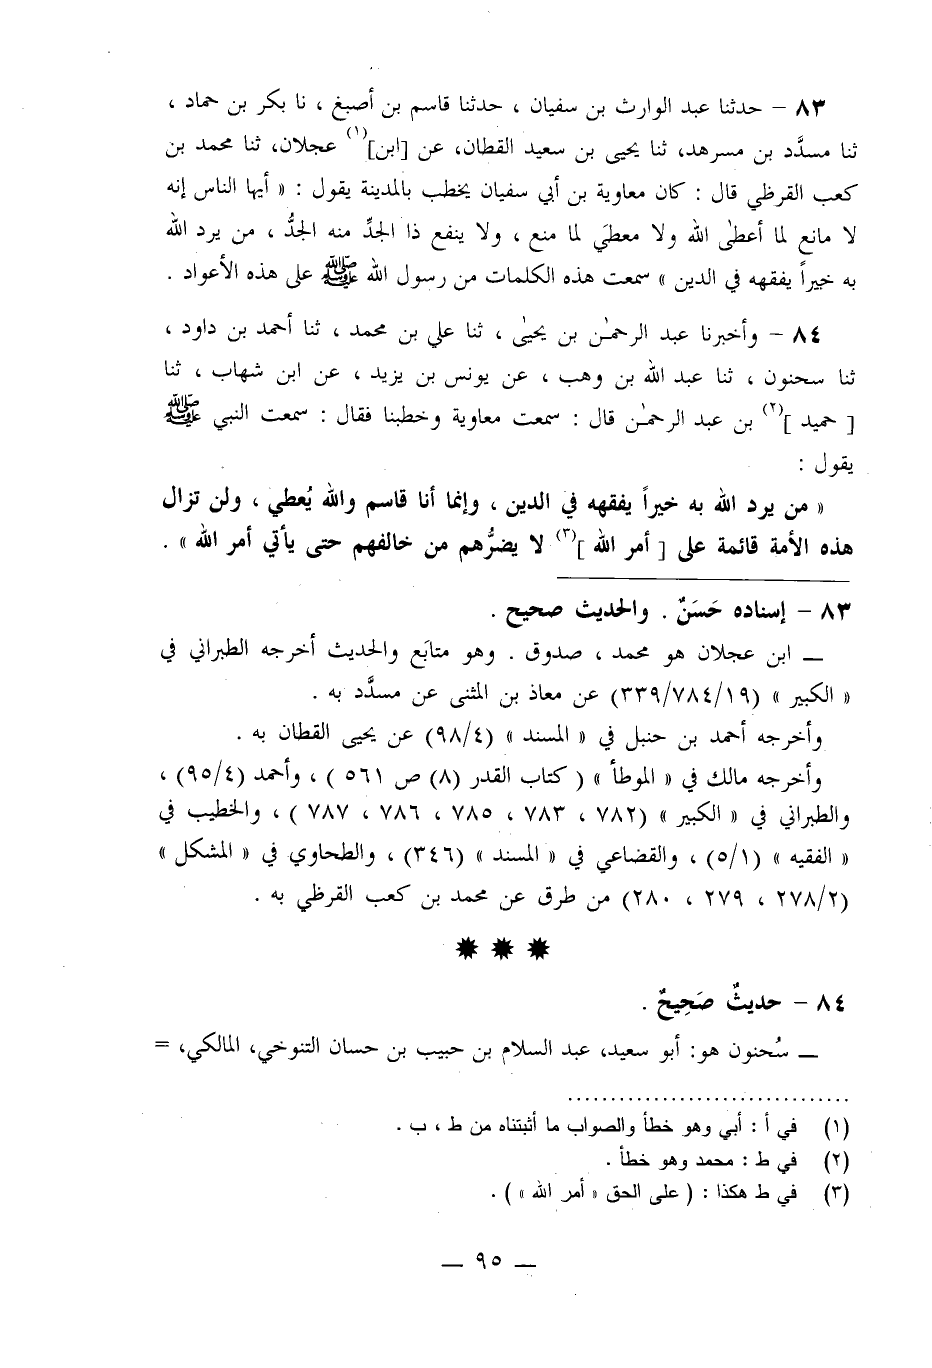 ٨٣ – حدثنا عبد الوارث بن سفيان ، حدثنا قاسم بن أصبغ ، نا بكر بن حماد ،
ثنا مسدَّد بن مسرهد، ثنا يحيى بن سعيد القطان، عن [ابن](١) عجلان، ثنا محمد بن
كعب القرظي قال : كان معاوية بن أبي سفيان يخطب بالمدينة يقول : « أيها الناس إنه
لا مانع لما أعطى الله ولا معطي لما منع ، ولا ينفع ذا الجدِّ منه الجدُّ ، من يرد الله
به خيراً يفقهه في الدين » سمعت هذه الكلمات من رسول الله ﷺ على هذه الأعواد .
٨٤ – وأخبرنا عبد الرحمٰن بن يحيىٰ ، ثنا علي بن محمد ، ثنا أحمد بن داود ،
ثنا سحنون ، ثنا عبد الله بن وهب ، عن يونس بن يزيد ، عن ابن شهاب ، ثنا
[ حميد ](٢) بن عبد الرحمٰن قال : سمعت معاوية وخطبنا فقال : سمعت النبي ﷺ
يقول :
« من يرد الله به خيراً يفقهه في الدين ، وإنما أنا قاسم والله يُعطي ، ولن تزال
هذه الأمة قائمة على [ أمر الله ](٣) لا يضرُّهم من خالفهم حتى يأتي أمر الله » .
٨٣ – إسناده حَسَنٌ . والحديث صحيح .
— ابن عجلان هو محمد ، صدوق . وهو متابَع والحديث أخرجه الطبراني في
« الكبير » (٣٣٩/٧٨٤/١٩) عن معاذ بن المثنى عن مسدَّد به .
وأخرجه أحمد بن حنبل في « المسند » (٩٨/٤) عن يحيى القطان به .
وأخرجه مالك في « الموطأ » ( كتاب القدر (٨) ص ٥٦١ ) ، وأحمد (٩٥/٤) ،
والطبراني في « الكبير » (٧٨٢ ، ٧٨٣ ، ٧٨٥ ، ٧٨٦ ، ٧٨٧ ) ، والخطيب في
« الفقيه » (٥/١) ، والقضاعي في « المسند » (٣٤٦) ، والطحاوي في « المشكل »
(٢٧٨/٢ ، ٢٧٩ ، ٢٨٠) من طرق عن محمد بن كعب القرظي به .
٨٤ – حديثٌ صَحِيحٌ .
— سُحنون هو: أبو سعيد، عبد السلام بن حبيب بن حسان التنوخي، المالكي، =
(١) في أ : أبي وهو خطأ والصواب ما أثبتناه من ط ، ب .
(٢) في ط : محمد وهو خطأ .
(٣) في ط هكذا : ( على الحق « أمر الله » ) .
— ٩٥ —